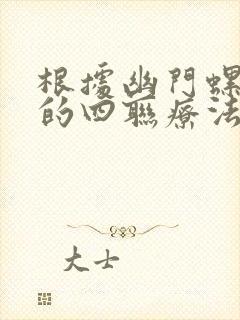 根据幽門螺
的四聯療法
大士